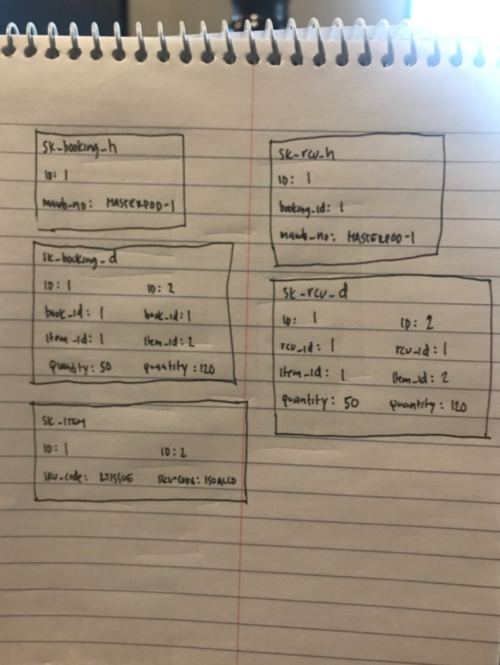 sk_booking_h
ID: 1
mawb_no: MASTERPOD-1
sk_rcv_h
ID: 1
booking_id: 1
mawb_no: MASTERPOD-1
sk_booking_d
ID: 1 ID: 2
book_id: 1 book_id: 1
Item_id: 1 Item_id: 2
quantity: 50 quantity: 120
sk_rcv_d
ID: 1 ID: 2
rcv_id: 1 rcv_id: 1
Item_id: 1 Item_id: 2
quantity: 50 quantity: 120
SK_ITEM
ID: 1 ID: 2
SKU_code: LTISSUE SKU-CODE: ISOALCO